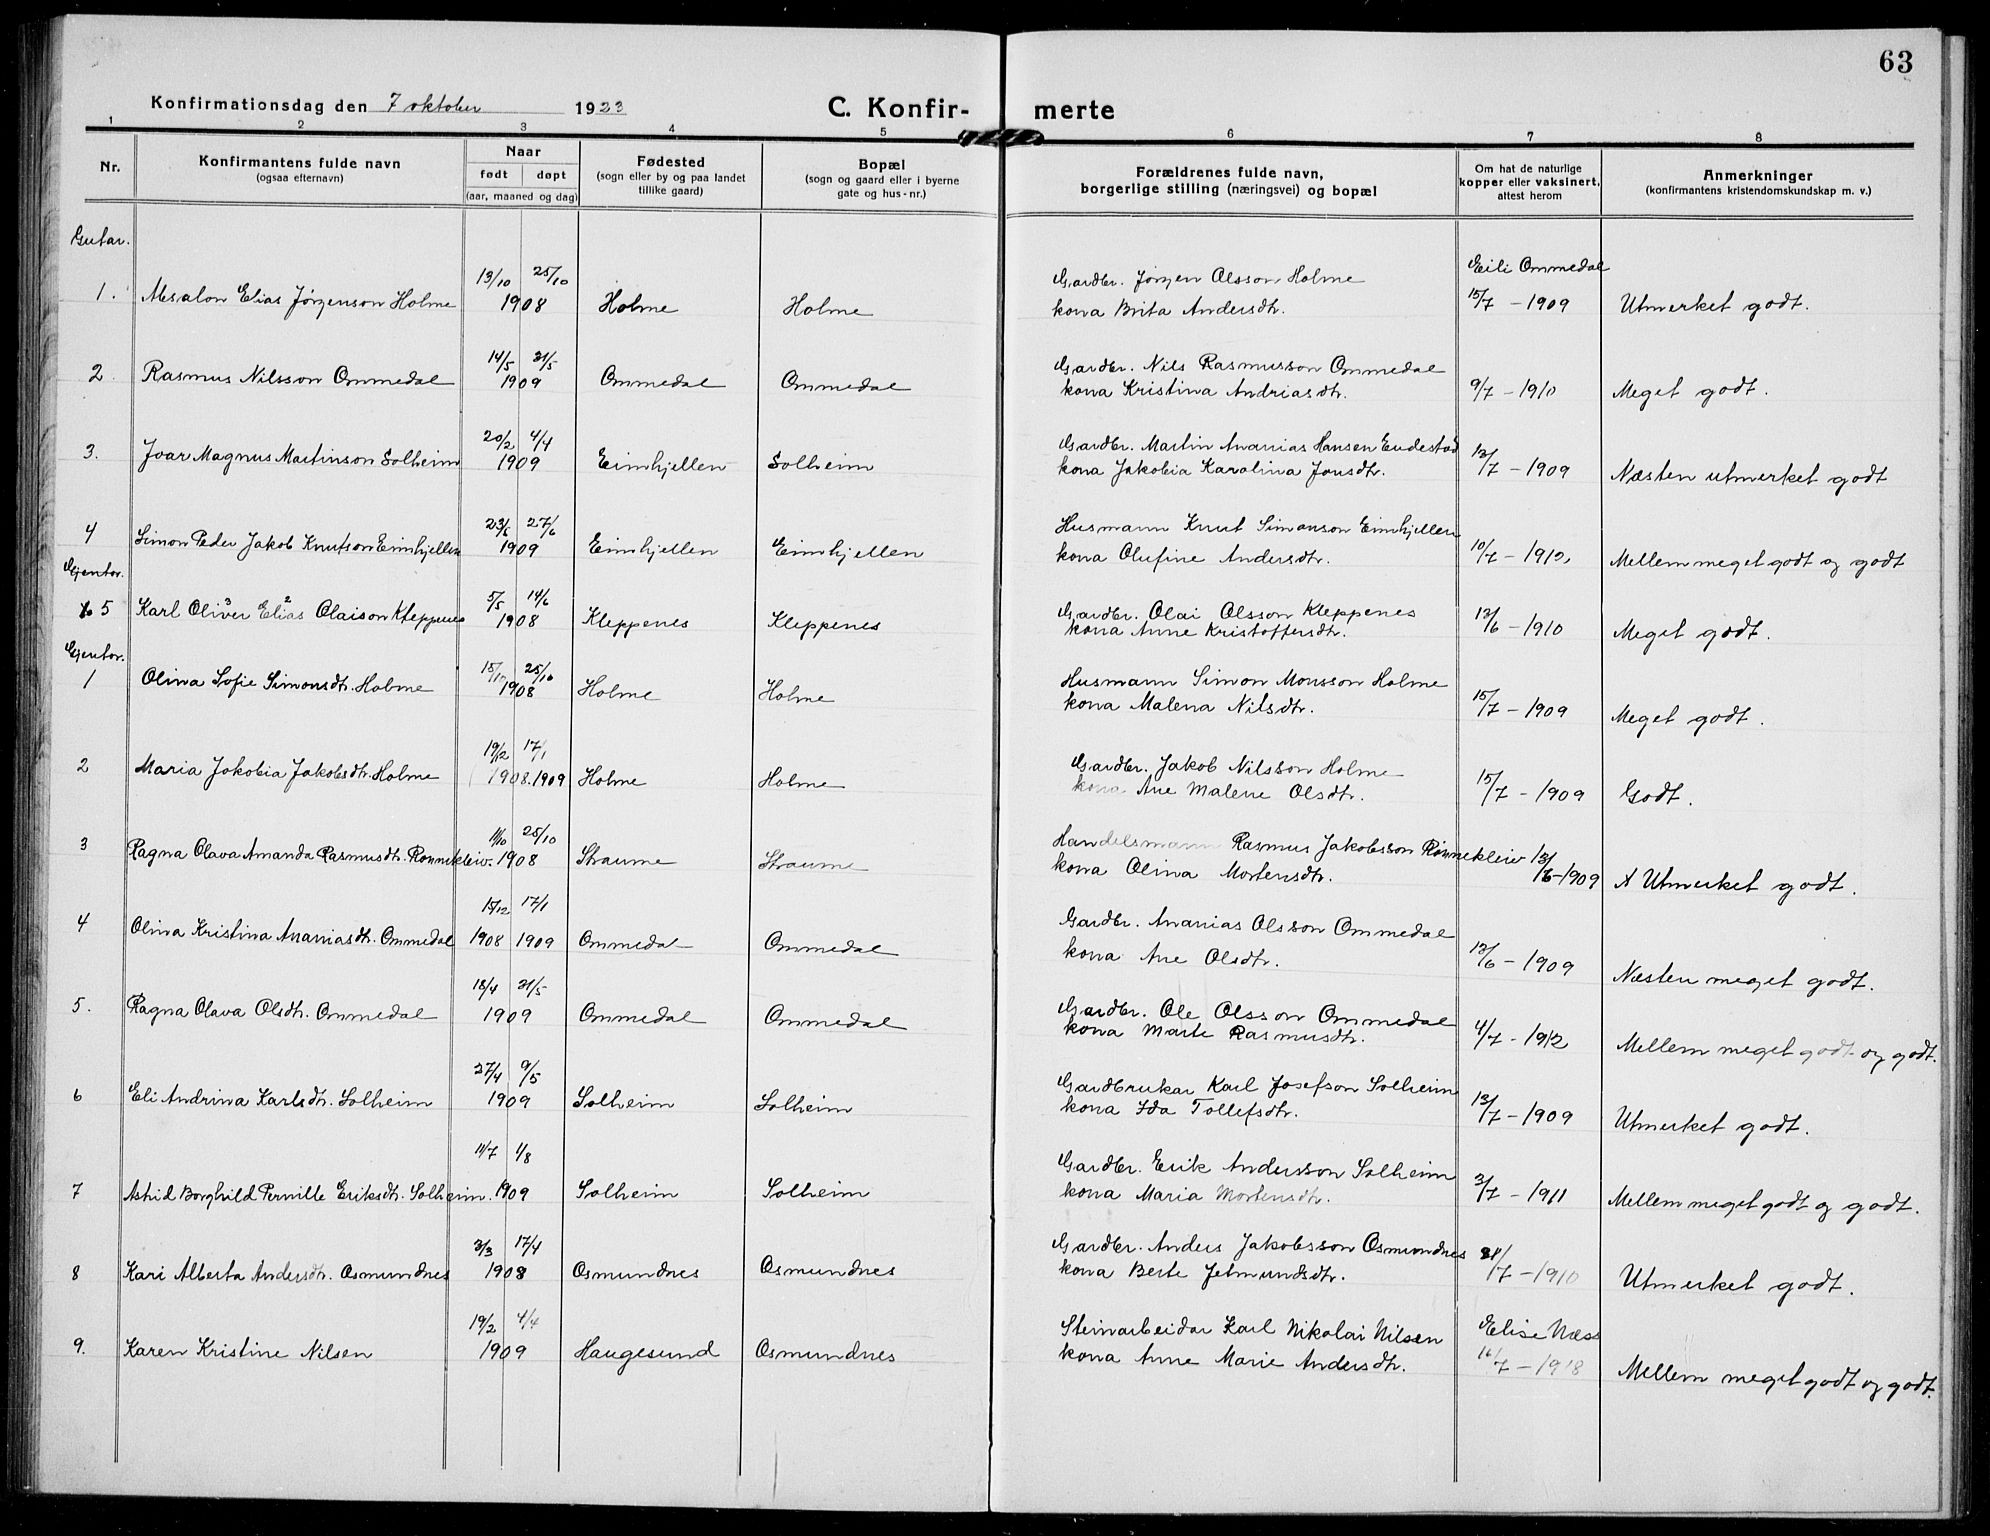 63
Konfirmationsdag den 7 oktober 1923 C. Konfir- merte
1 2 3 4 5 6 7 8
Nr. Konfirmantens fulde navn (ogsaa efternavn) Naar født døpt (aar, maaned og dag) Fødested (sogn eller by og paa landet tillike gaard) Bopæl (sogn og gaard eller i byerne gate og hus-nr.) Forældrenes fulde navn, borgerlige stilling (næringsvei) og bopæl Om hat de naturlige kopper eller vaksinert, attest herom Anmerkninger (konfirmantens kristendomskundskap m. v.)
Gutar.
13/10 25/10 Gardbr. Jörgen Olsson Holme Eili Ommedal
1. Absalon Elias Jörgenson Holme 1908 Holme Holme kona Brita Andersdtr. 15/7 - 1909 Utmerket godt.
14/5 31/5 Gardbr. Nils Rasmusson Ommedal
2. Rasmus Nilsson Ommedal 1909 Ommedal Ommedal kona Kristina Andriasdtr. 9/7 - 1910 Meget godt.
20/2 4/4 Gardbr. Martin Ananias Hansen Endestad
3. Joar Magnus Martinson Solheim 1909 Eimhjellen Solheim kona Jakobia Karolina Jonsdtr. 12/7 - 1909 Næsten utmerket godt
23/5 27/6 Husmann Knut Simonson Eimhjellen
4 Simon Peder Jakob Knutson Eimhjellen 1909 Eimhjellen Eimhjellen kona Olufine Andersdtr. 10/7 - 1912 Mellem meget godt og godt
Gjentor.
5/5 14/6 Gardbr. Olai Olsson Kleppenes
5 Karl Oliver 3 Elias 2 Olaison Kleppenes 1908 Kleppenes Kleppenes kona Anne Kristoffersdtr. 12/6 - 1910 Meget godt.
Gjentor.
15/10 25/10 Husmann Simon Monsson Holme
1 Olina Sofie Simonsdtr. Holme 1908 Holme Holme kona Malena Nilsdtr. 15/7 - 1909 Meget godt.
19/12 17/1 Gardbr. Jakob Nilsson Holme
2 Maria Jakobia Jakobsdtr. Holme 1908. 1909 Holme Holme kona Ane Malene Olsdtr. 15/7 - 1909 Godt.
11/10 25/10 Handelsmann Rasmus Jakobsson Rönnekleiv
3 Ragna Olava Amanda Rasmusdtr. Rönnekleiv. 1908 Straume Straume kona Olina Mortensdtr. 12/6 - 1909 Utmerket godt.
15/12 17/1 Gardbr. Ananias Olsson Ommedal
4 Olina Kristina Ananiasdtr. Ommedal 1908 1909 Ommedal Ommedal kona Ane Olsdtr. 12/6 - 1909 Næsten meget godt.
18/4 31/5 Gardbr. Ole Olsson Ommedal
5. Ragna Olava Olsdtr. Ommedal 1909 Ommedal Ommedal kona Marte Rasmusdtr. 4/7 - 1912 Mellem meget godt og godt.
27/4 9/5 Gardbrukar Karl Josefson Solheim
6 Eli Andrina Karlsdtr. Solheim 1909 Solheim Solheim kona Ida Tollefsdtr. 12/7 - 1909 Utmerket godt.
11/7 1/8 Gardbr. Erik Andersson Solheim
7 Astrid Borghild Pernille Eriksdtr. Solheim. 1909 Solheim Solheim kona Maria Mortensdtr. 3/7 - 1911 Mellem meget godt og godt.
3/3 17/4 Gardbr. Anders Jakobsson Osmundnes
8 Kari Alberta Andersdtr. Osmundnes 1908 Osmundnes Osmundnes kona Berte Jetmundsdtr. 21/7 - 1910 Utmerket godt.
19/2 4/4 Steinarbeidar Karl Nikolai Nilsen Elise Næss
9. Karen Kristine Nilsen 1909 Haugesund Osmundnes kona Anne Marie Andersdtr. 16/7 - 1918 Mellem meget godt og godt.